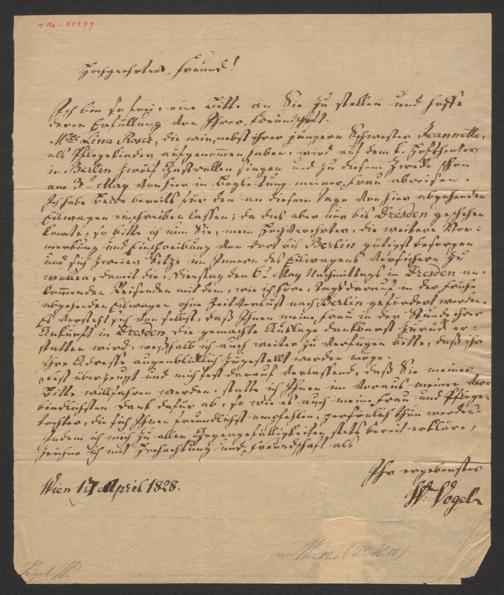 Hochgeehrter Freund!
Ich bin so frei, eine Bitte an Sie zu stellen und hoffe
deren Erfüllung von Ihrer Freundschaft.
Mlle Lina Roser, die wir nebst ihrer jüngern Schwester Jeannette,
als Pflegekinder aufgenommen haben, wird auf dem k. Hoftheater
in Berlin zwölf Gastrollen singen und zu diesem Zwecke schon
am 3. May von hier in Begleitung meiner Frau abreisen.
Ich habe Beide bereits für den an diesem Tage von hier abgehenden
Eilwagen einschreiben lassen; da dies aber nur bis Dresden geschehen
konnte, so bitte ich nun Sie, mein Hochverehrter, die weitere Vor-
merkung und Einschreibung von dort bis Berlin gütigst besorgen
und sich zweier Sitze im Innern des Eilwagens versichern zu
wollen, damit die, Dienstag den 6. May Nachmittags in Dresden an-
kommenden Reisenden mit dem, wie ich höre, Tags darauf in der Frühe
abgehenden Eilwagen ohne Zeitverlust nach Berlin befördert werden.
Es versteht sich von selbst, daß Ihnen meine Frau in der Stunde ihrer
Ankunft in Dresden die gemachte Auslage dankbarst zurück er-
statten wird, weßhalb ich auch weiter zu verfügen bitte, daß ihr
Ihre Adresse augenblicklich zugestellt werden möge.
Fest überzeugt und mich fest darauf verlassend, daß Sie meiner
Bitte willfahren werden, statte ich Ihnen im Voraus meinen ver-
bindlichsten Dank dafür ab, so wie es auch meine Frau und Pflege-
tochter, die sich Ihnen freundlichst empfehlen, persönlich thun werden.
Indem ich mich zu allen Gegengefälligkeiten stets bereit erkläre,
zeichne ich mit Hochachtung und Freundschaft als
Ihr ergebenster
W. Vogel
Wien 17 April 1828.
Vogel W.